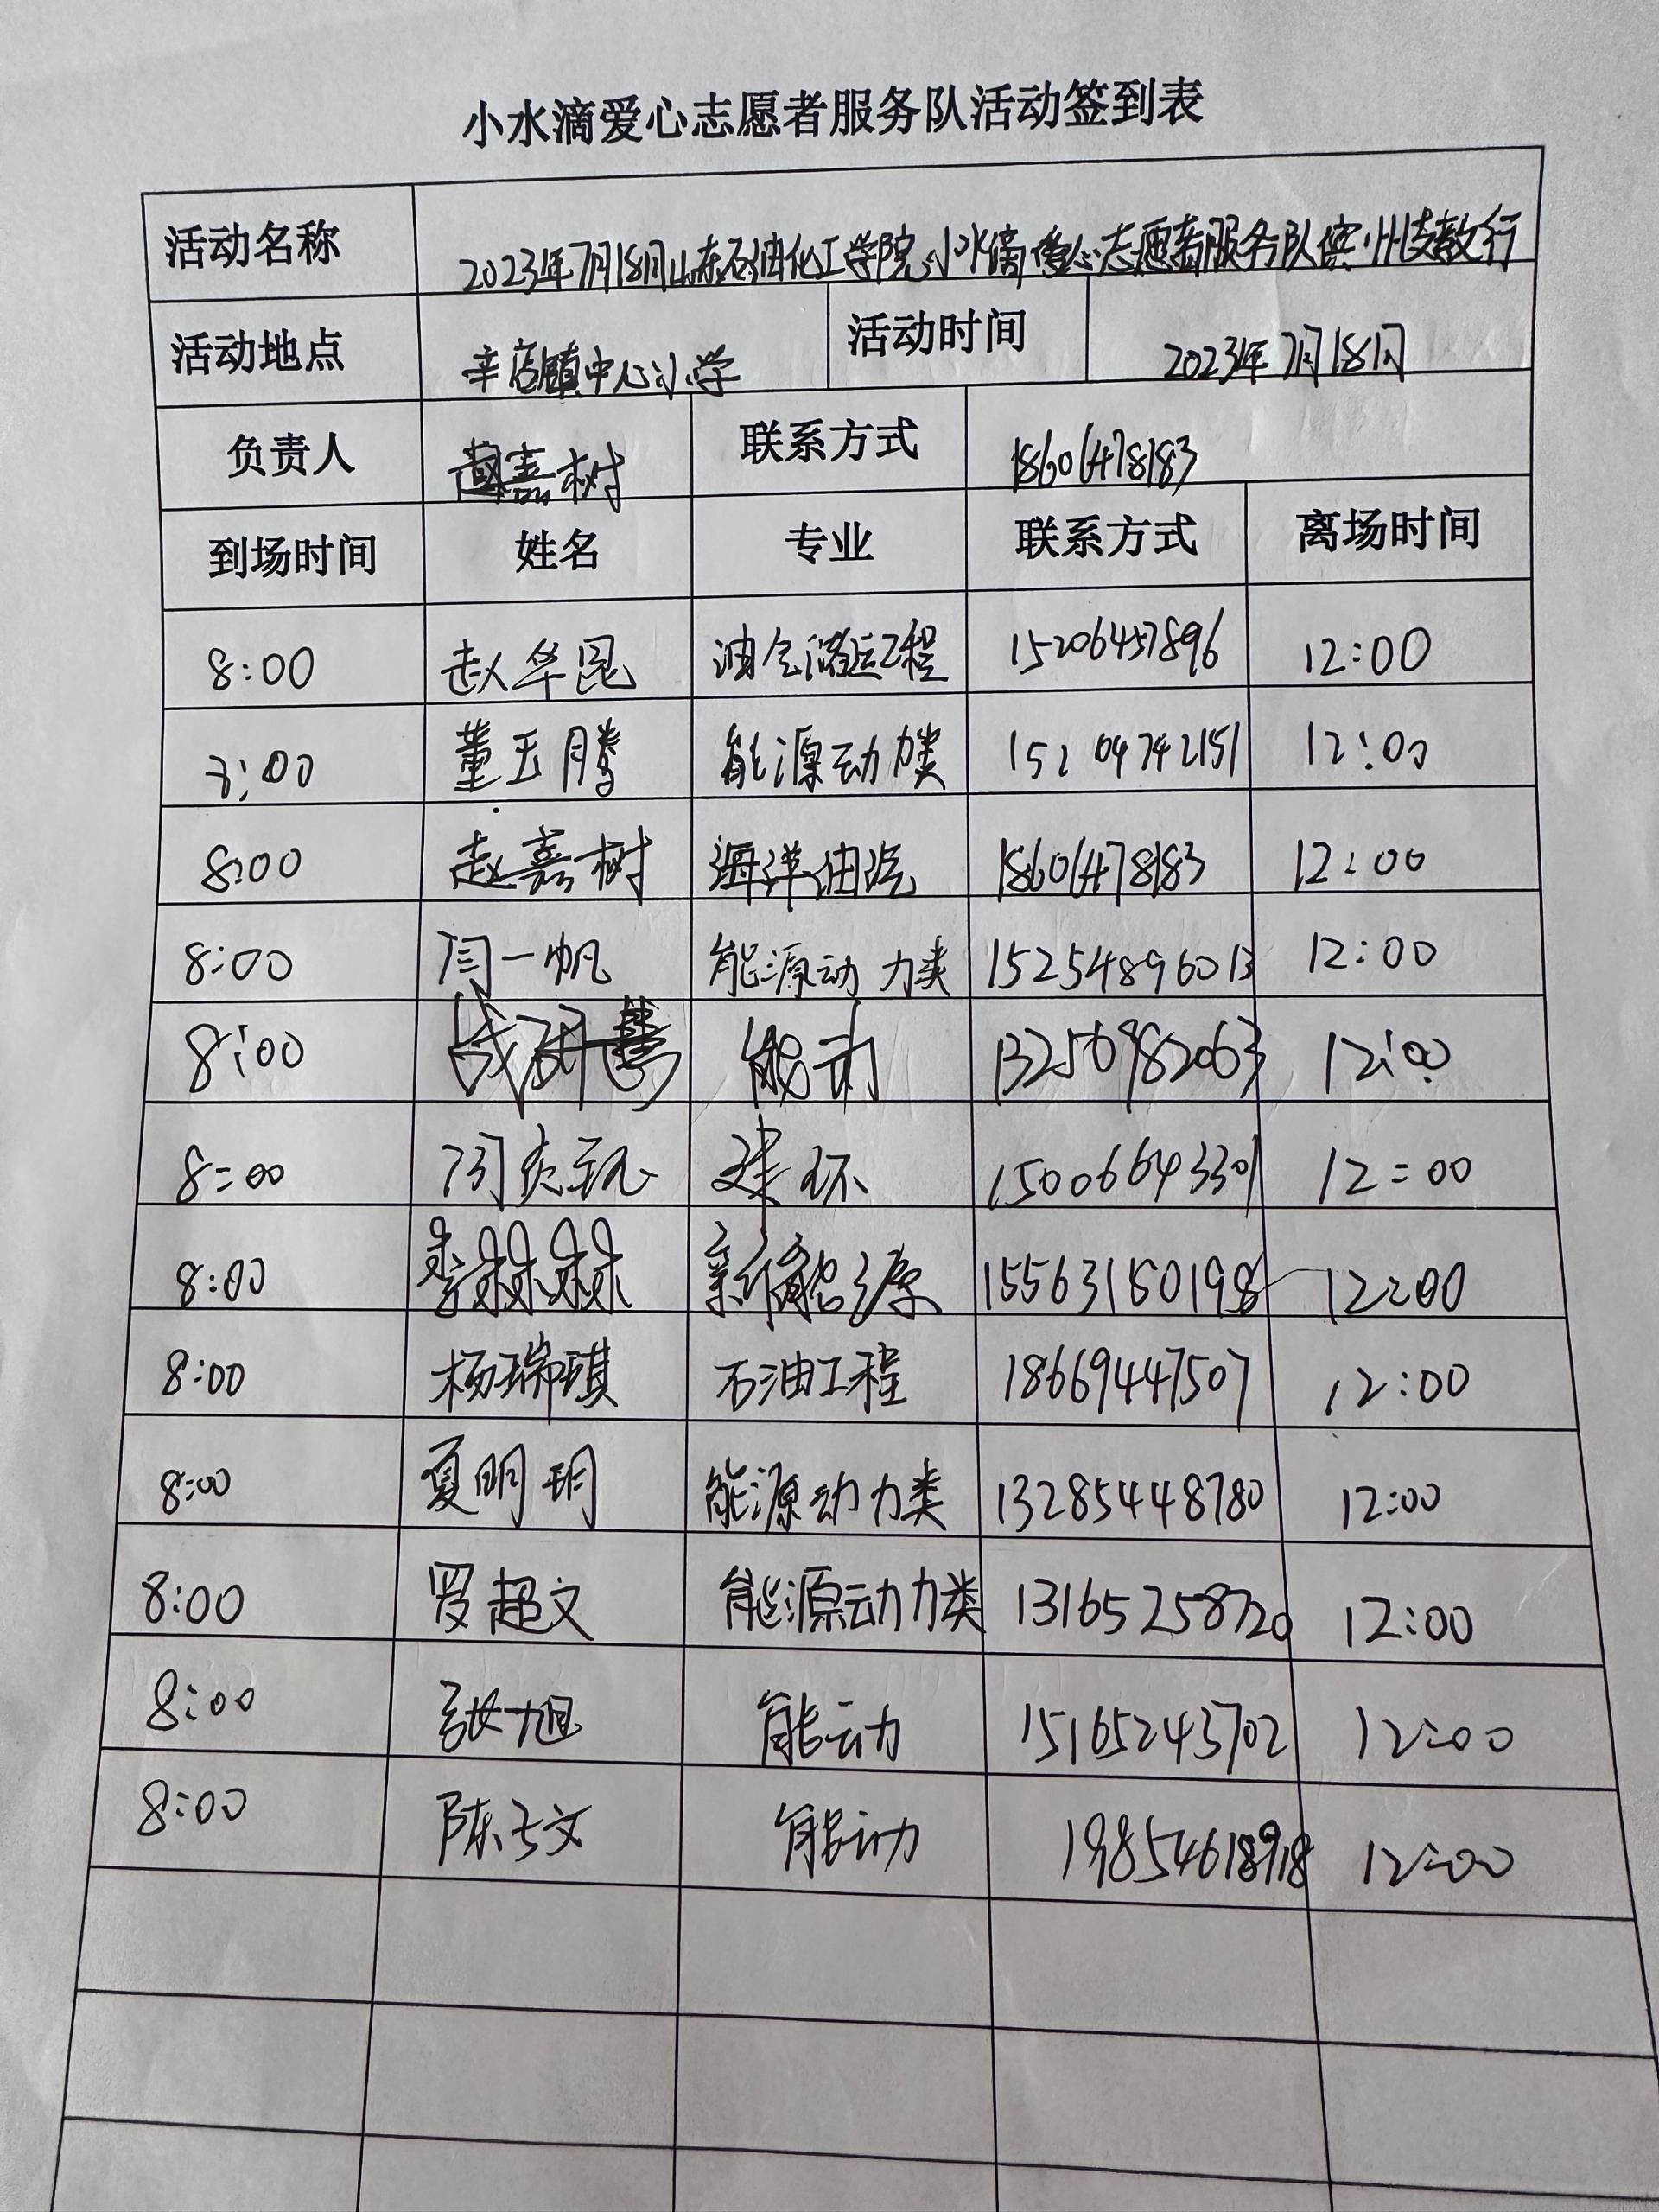 小水滴爱心志愿者服务队活动签到表
活动名称 2023年7月18日山东石油化工学院小水滴爱心志愿者服务队滨州支教行
活动地点 辛店镇中心小学 活动时间 2023年7月18日
负责人 赵嘉树 联系方式 18606478183
到场时间 姓名 专业 联系方式 离场时间
8:00 赵华昆 油气储运工程 15206457896 12:00
8:00 董玉腾 能源动力类 15204742151 12:00
8:00 赵嘉树 海洋油气 18606478183 12:00
8:00 闫一帆 能源动力类 15254896013 12:00
8:00 能动 13256982063 12:00
8:00 建环 15006643301 12:00
8:00 李林林 新能源 15563150198 12:00
8:00 杨瑞琪 石油工程 18669447507 12:00
8:00 夏明玥 能源动力类 13285448780 12:00
8:00 罗超文 能源动力类 13165258720 12:00
8:00 张旭 能动 15165243702 12:00
8:00 陈子文 能动 19854618918 12:00